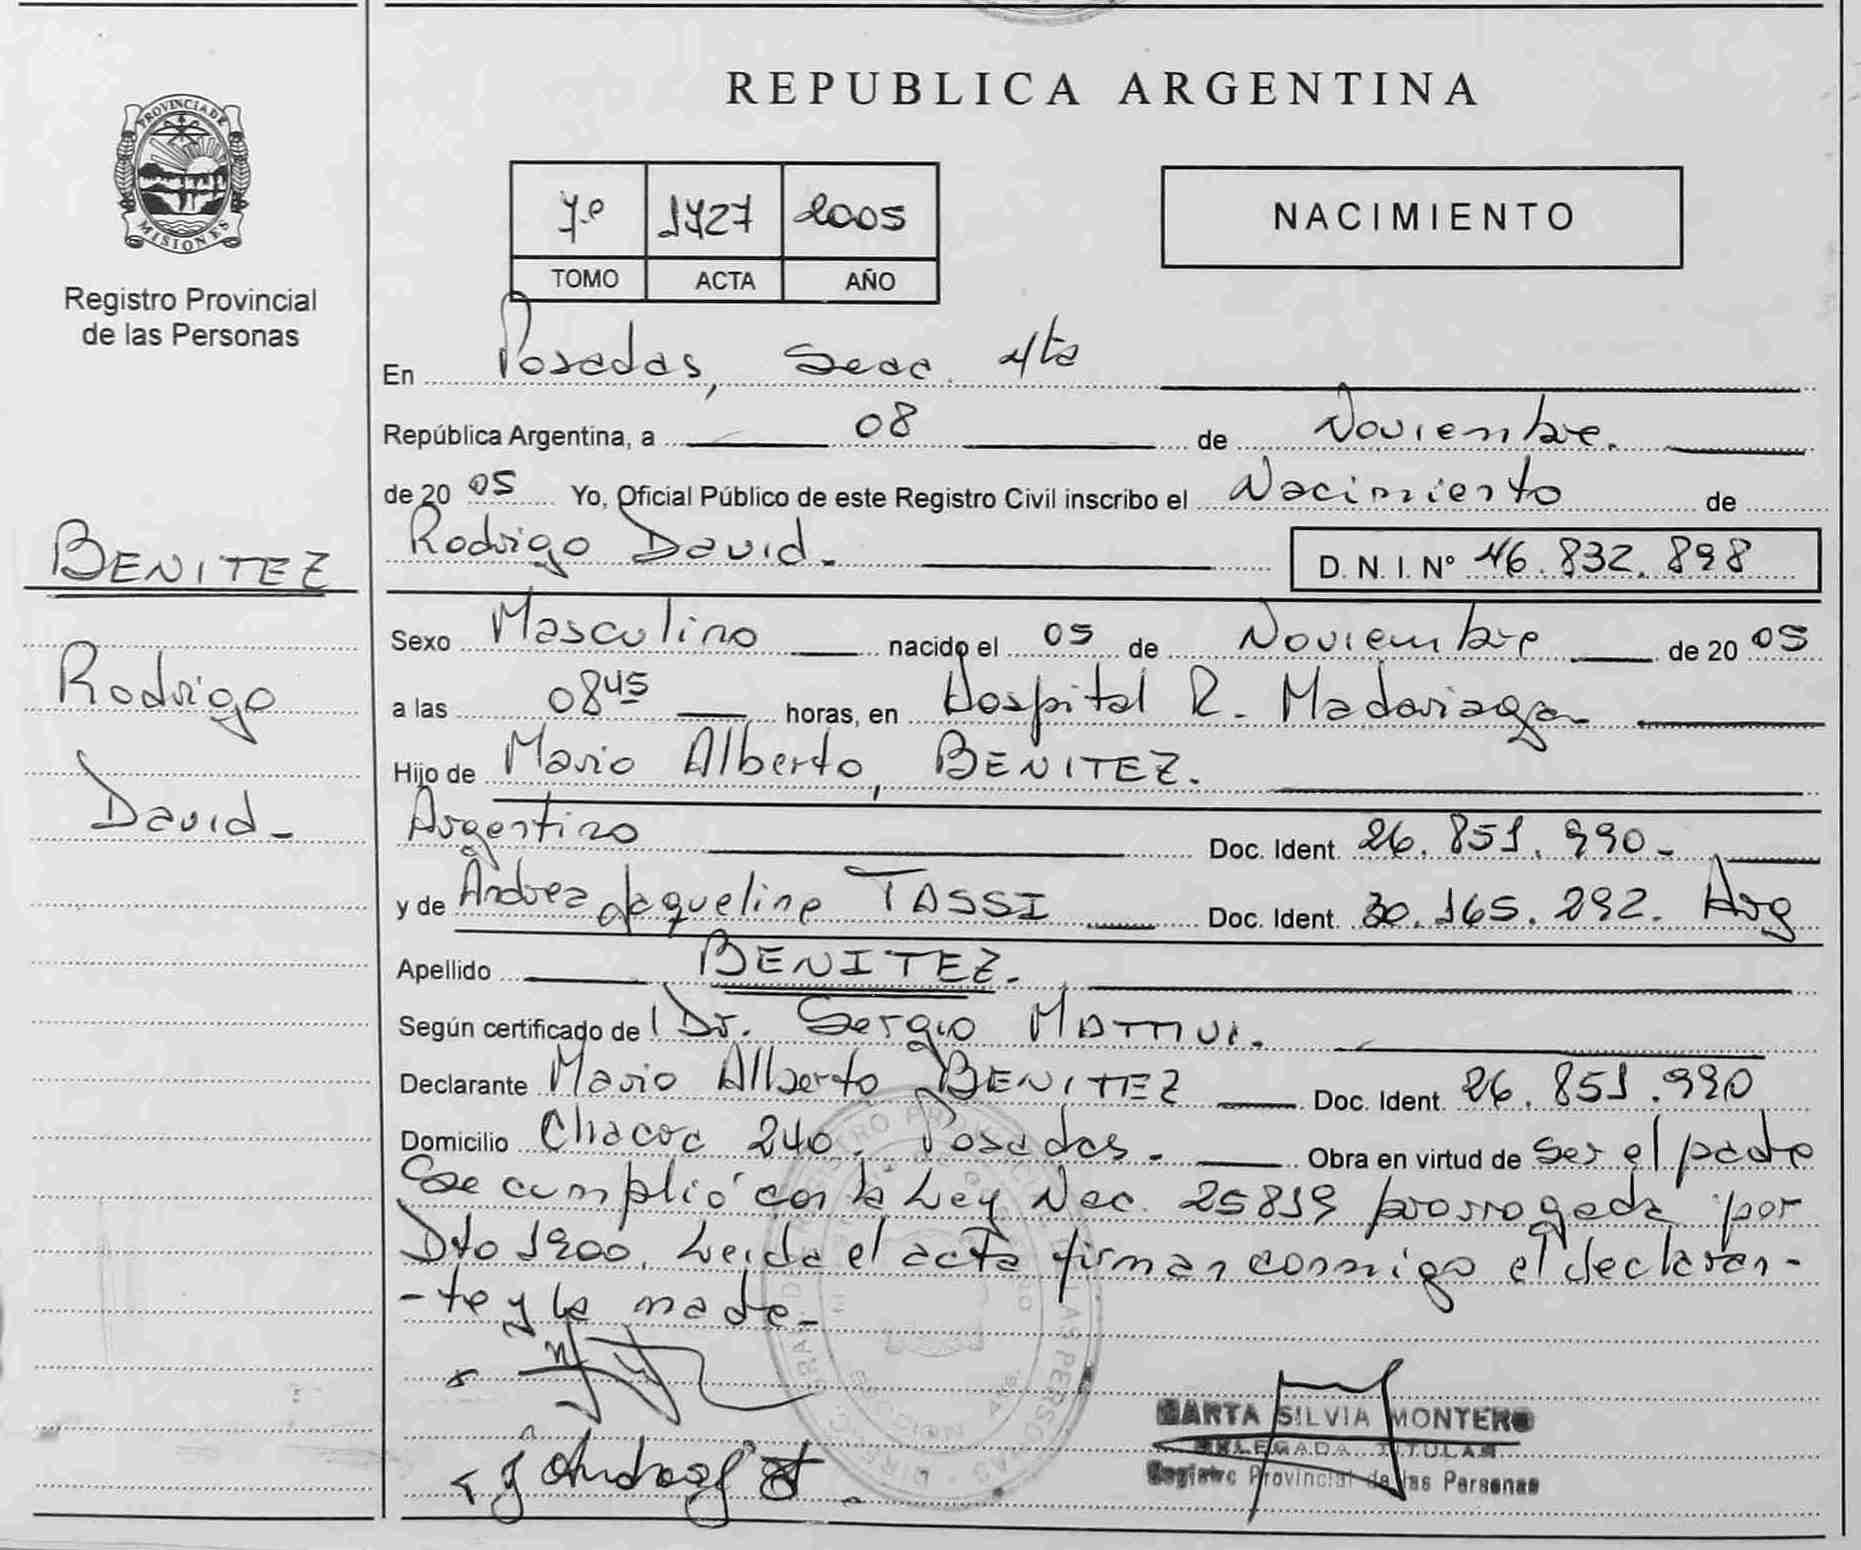 PROVINCIA DE
MISIONES
Registro Provincial
de las Personas
BENITEZ
Rodrigo
David-
REPUBLICA ARGENTINA
7º 1727 2005
TOMO ACTA AÑO
NACIMIENTO
En Posadas, Secc. 4ta
República Argentina, a 08 de Noviembre.
de 20 05 Yo, Oficial Público de este Registro Civil inscribo el Nacimiento de
Rodrigo David. D. N. I. Nº 46.832.898
Sexo Masculino nacido el 05 de Noviembre de 20 05
a las 08 45 horas, en Hospital R. Madariaga
Hijo de Mario Alberto, BENITEZ.
Argentino Doc. Ident. 26.851.990-
y de Andrea Jaqueline TASSI Doc. Ident. 30.165.292. Arg
Apellido BENITEZ.
Según certificado de Dr. Sergio
Declarante Mario Alberto BENITEZ Doc. Ident. 26.851.990
Domicilio 240. Posadas. Obra en virtud de ser el padre
Se cumplió con la Ley Nac. 25819 prorrogada por
Dto 1900. Leida el acta firman conmigo el declaran-
-te y la madre-
MARTA SILVIA MONTERO
DELEGADA TITULAR
Registro Provincial de las Personas